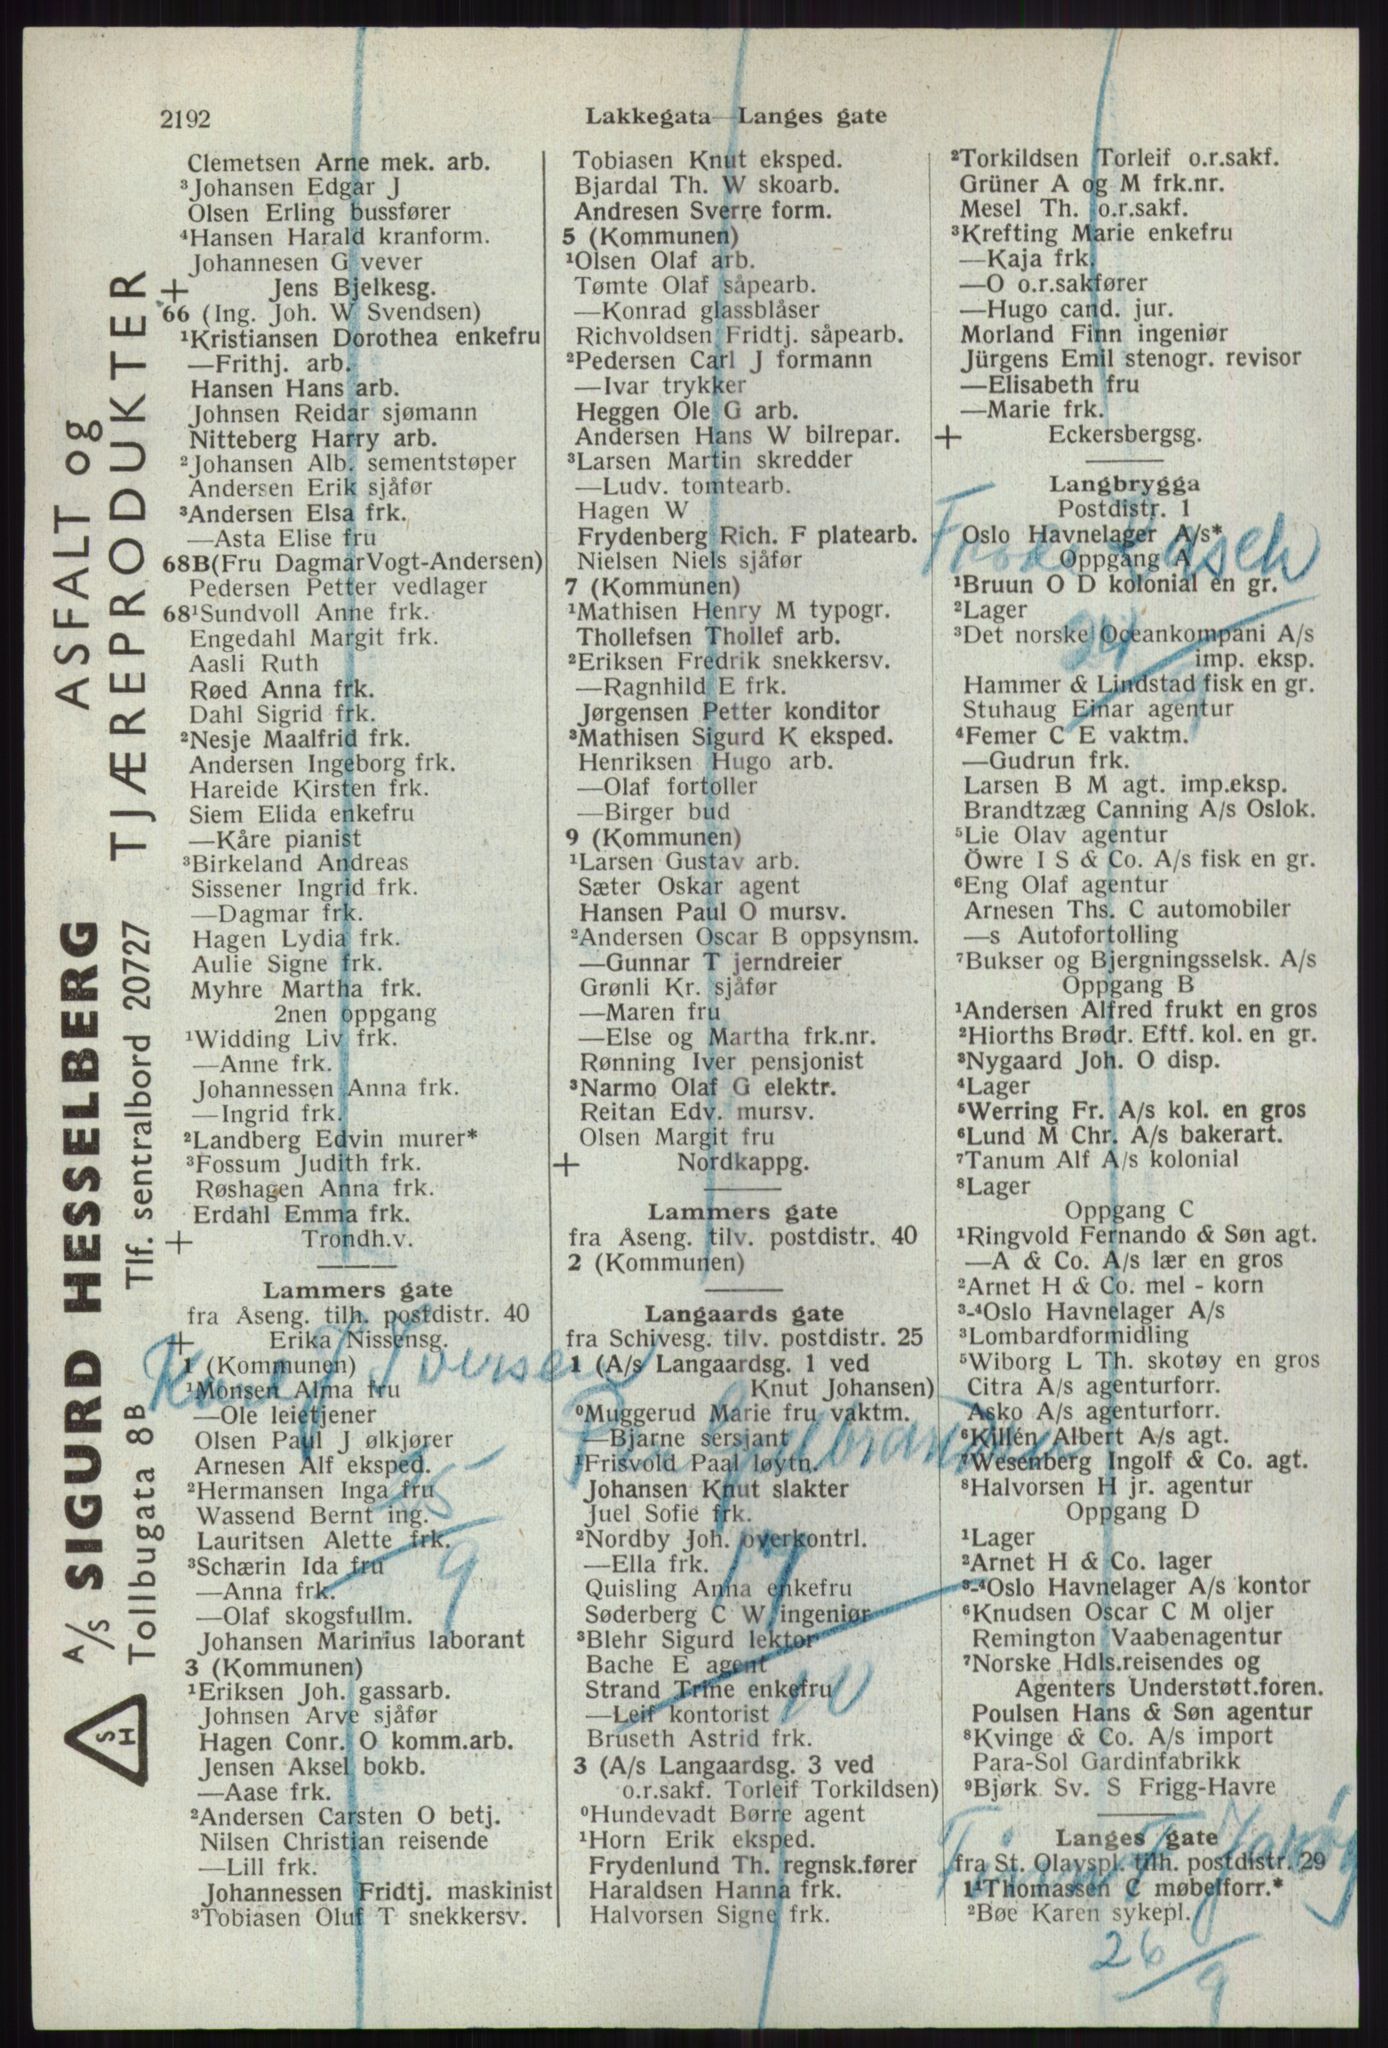 2192
Lakkegata—Langes gate
Clemetsen Arne mek. arb.
³Johansen Edgar J
Olsen Erling bussfører
⁴Hansen Harald kranform.
Johannesen G vever
+ Jens Bjelkesg.
66 (Ing. Joh. W Svendsen)
¹Kristiansen Dorothea enkefru
—Frithj. arb.
Hansen Hans arb.
Johnsen Reidar sjømann
Nitteberg Harry arb.
²Johansen Alb. sementstøper
Andersen Erik sjåfør
³Andersen Elsa frk.
—Asta Elise fru
68B(Fru Dagmar Vogt-Andersen)
Pedersen Petter vedlager
68¹Sundvoll Anne frk.
Engedahl Margit frk.
Aasli Ruth
Røed Anna frk.
Dahl Sigrid frk.
²Nesje Maalfrid frk.
Andersen Ingeborg frk.
Hareide Kirsten frk.
Siem Elida enkefru
—Kåre pianist
³Birkeland Andreas
Sissener Ingrid frk.
—Dagmar frk.
Hagen Lydia frk.
Aulie Signe frk.
Myhre Martha frk.
2nen oppgang
¹Widding Liv frk.
—Anne frk.
Johannessen Anna frk.
—Ingrid frk.
²Landberg Edvin murer*
³Fossum Judith frk.
Røshagen Anna frk.
Erdahl Emma frk.
+ Trondh.v.
Lammers gate
fra Åseng. tilh. postdistr. 40
+ Erika Nissensg.
1 (Kommunen)
¹Monsen Alma fru
—Ole leietjener
Olsen Paul J ølkjører
Arnesen Alf eksped.
²Hermansen Inga fru
Wassend Bernt ing.
Lauritsen Alette frk.
³Schærin Ida fru
—Anna frk.
—Olaf skogsfullm.
Johansen Marinius laborant
3 (Kommunen)
¹Eriksen Joh. gassarb.
Johnsen Arve sjåfør
Hagen Conr. O komm.arb.
Jensen Aksel bokb.
—Aase frk.
²Andersen Carsten O betj.
Nilsen Christian reisende
—Lill frk.
Johannessen Fridtj. maskinist
³Tobiasen Oluf T snekkersv.
Tobiasen Knut eksped.
Bjardal Th. W skoarb.
Andresen Sverre form.
5 (Kommunen)
¹Olsen Olaf arb.
Tømte Olaf såpearb.
—Konrad glassblåser
Richvoldsen Fridtj. såpearb.
²Pedersen Carl J formann
—Ivar trykker
Heggen Ole G arb.
Andersen Hans W bilrepar.
³Larsen Martin skredder
—Ludv. tomtearb.
Hagen W
Frydenberg Rich. F platearb.
Nielsen Niels sjåfør
7 (Kommunen)
¹Mathisen Henry M typogr.
Thollefsen Thollef arb.
²Eriksen Fredrik snekkersv.
—Ragnhild E frk.
Jørgensen Petter konditor
³Mathisen Sigurd K eksped.
Henriksen Hugo arb.
—Olaf fortoller
—Birger bud
9 (Kommunen)
¹Larsen Gustav arb.
Sæter Oskar agent
Hansen Paul O mursv.
²Andersen Oscar B oppsynsm.
—Gunnar T jerndreier
Grønli Kr. sjåfør
—Maren fru
—Else og Martha frk.nr.
Rønning Iver pensjonist
³Narmo Olaf G elektr.
Reitan Edv. mursv.
Olsen Margit fru
+ Nordkappg.
Lammers gate
fra Åseng. tilv. postdistr. 40
2 (Kommunen)
Langaards gate
fra Schivesg. tilv. postdistr. 25
1 (A/s Langaardsg. 1 ved
Knut Johansen)
⁰Muggerud Marie fru vaktm.
—Bjarne sersjant
¹Frisvold Paal løytn.
Johansen Knut slakter
Juel Sofie frk.
²Nordby Joh. overkontrl.
—Ella frk.
Quisling Anna enkefru
Søderberg C W ingeniør
³Blehr Sigurd lektor
Bache E agent
Strand Trine enkefru
—Leif kontorist
Bruseth Astrid frk.
3 (A/s Langaardsg. 3 ved
o.r.sakf. Torleif Torkildsen)
⁰Hundevadt Børre agent
¹Horn Erik eksped.
Frydenlund Th. regnsk.fører
Haraldsen Hanna frk.
Halvorsen Signe frk.
²Torkildsen Torleif o.r.sakf.
Grüner A og M frk.nr.
Mesel Th. o.r.sakf.
³Krefting Marie enkefru
—Kaja frk.
—O o.r.sakfører
—Hugo cand. jur.
Morland Finn ingeniør
Jürgens Emil stenogr. revisor
—Elisabeth fru
—Marie frk.
+ Eckersbergsg.
Langbrygga
Postdistr. 1
Oslo Havnelager A/s*
Oppgang A
¹Bruun O D kolonial en gr.
²Lager
³Det norske Oceankompani A/s
imp. eksp.
Hammer & Lindstad fisk en gr.
Stuhaug Einar agentur
⁴Femer C E vaktm.
—Gudrun frk.
Larsen B M agt. imp.eksp.
Brandtzæg Canning A/s Oslok.
⁵Lie Olav agentur
Öwre I S & Co. A/s fisk en gr.
⁶Eng Olaf agentur
Arnesen Ths. C automobiler
—s Autofortolling
⁷Bukser og Bjergningsselsk. A/s
Oppgang B
¹Andersen Alfred frukt en gros
²Hiorths Brødr. Eftf. kol. en gr.
³Nygaard Joh. O disp.
⁴Lager
⁵Werring Fr. A/s kol. en gros
⁶Lund M Chr. A/s bakerart.
⁷Tanum Alf A/s kolonial
⁸Lager
Oppgang C
¹Ringvold Fernando & Søn agt.
—A & Co. A/s lær en gros
²Arnet H & Co. mel - korn
³-⁴Oslo Havnelager A/s
³Lombardformidling
⁵Wiborg L Th. skotøy en gros
Citra A/s agenturforr.
Asko A/s agenturforr.
⁶Killén Albert A/s agt.
⁷Wesenberg Ingolf & Co. agt.
⁸Halvorsen H jr. agentur
Oppgang D
¹Lager
²Arnet H & Co. lager
³-⁴Oslo Havnelager A/s kontor
⁶Knudsen Oscar C M oljer
Remington Vaabenagentur
⁷Norske Hdls.reisendes og
Agenters Understøtt.foren.
Poulsen Hans & Søn agentur
⁸Kvinge & Co. A/s import
Para-Sol Gardinfabrikk
⁹Bjørk Sv. S Frigg-Havre
Langes gate
fra St. Olavspl. tilh. postdistr. 29
1¹Thomassen C møbelforr.*
²Bøe Karen sykepl.
26/9
25/9
17/10
A/S SIGURD HESSELBERG
Tollbugata 8B Tlf. sentralbord 20727
ASFALT og
TJÆREPRODUKTER
SH